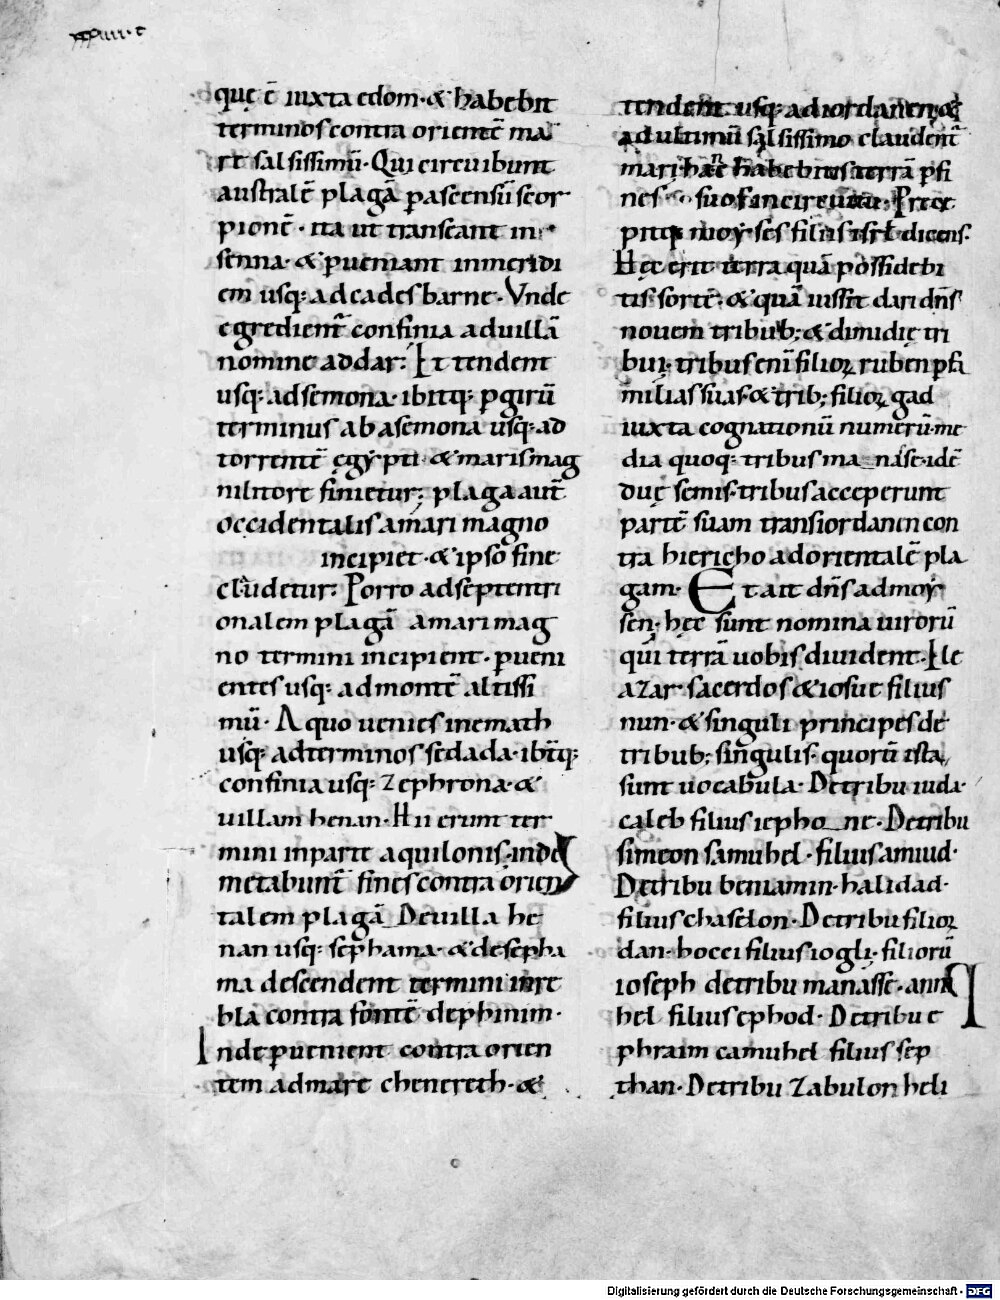 quę ē iuxta edom · & habebit
terminos contra orientē ma
re salsissimū · Qui circuibunt
australē plagā p ascensū scor
pionē · ita ut transeant in
senna · & pueniant in meridi
em usq: ad cades barne · Vnde
egredient confinia ad uillā
nomine addar : Et tendent
usq: ad semona · ibitq: p girū
terminus ab asemona usq: ad
torrentē ęgypti · & maris mag
ni litore finietur ; plaga aut
occidentalis a mari magno
incipiet · & ipso fine
cludetur : Porro ad septentri
onalem plagā a mari mag
no termini incipient · pueni
entes usq: ad montē altissi
mū · A quo uenies in emath
usq: ad terminos sedada · ibtq:
confinia usq: zephrona · &
uillam henan · Hii erunt ter
mini in parte aquilonis · inde
metabunt fines contra orien
talem plagā De uilla he
nan usq: sephama · & de sepha
ma descendent termini in re
bla contra fontē dephinim ·
Inde puenient contra orien
tem ad mare chenereth · &
tendent usq: ad iordanen · &
ad ultimū salsissimo claudent
mari hanc habebitis terrā p fi
nes suos in circuitu · Prece
pitq: moyses filiis isrł dicens ·
Hęc erit terra quā possidebi
tis sorte · & quā iussit dari dns
nouem tribub; & dimidię tri
bui · tribus eni filioꝝ ruben p fa
milias suas · & trib; filioꝝ gad
iuxta cognationū numerū · me
dia quoq: tribus manasse · idē
duę semis tribus acceperunt
partē suam trans iordanen con
tra hiericho ad orientalē pla
gam · Et ait dns ad moy
sen · hęc sunt nomina uirorū
qui terrā uobis diuident · Ele
azar sacerdos & iosue filius
nun · & singuli principes de
tribub; singulis · quorū ista
sunt uocabula · De tribu iuda ·
caleb filius iephone · De tribu
simeon samuhel · filius amiud ·
De tribu beniamin · halidad ·
filius chaselon · De tribu filioꝝ
dan · bocci filius iogli · filiorū
ioseph de tribu manasse · anni
hel filius ephod · De tribu e
phraim camuhel filius sep
than · De tribu zabulon heli
Digitalisierung gefördert durch die Deutsche Forschungsgemeinschaft - DFG